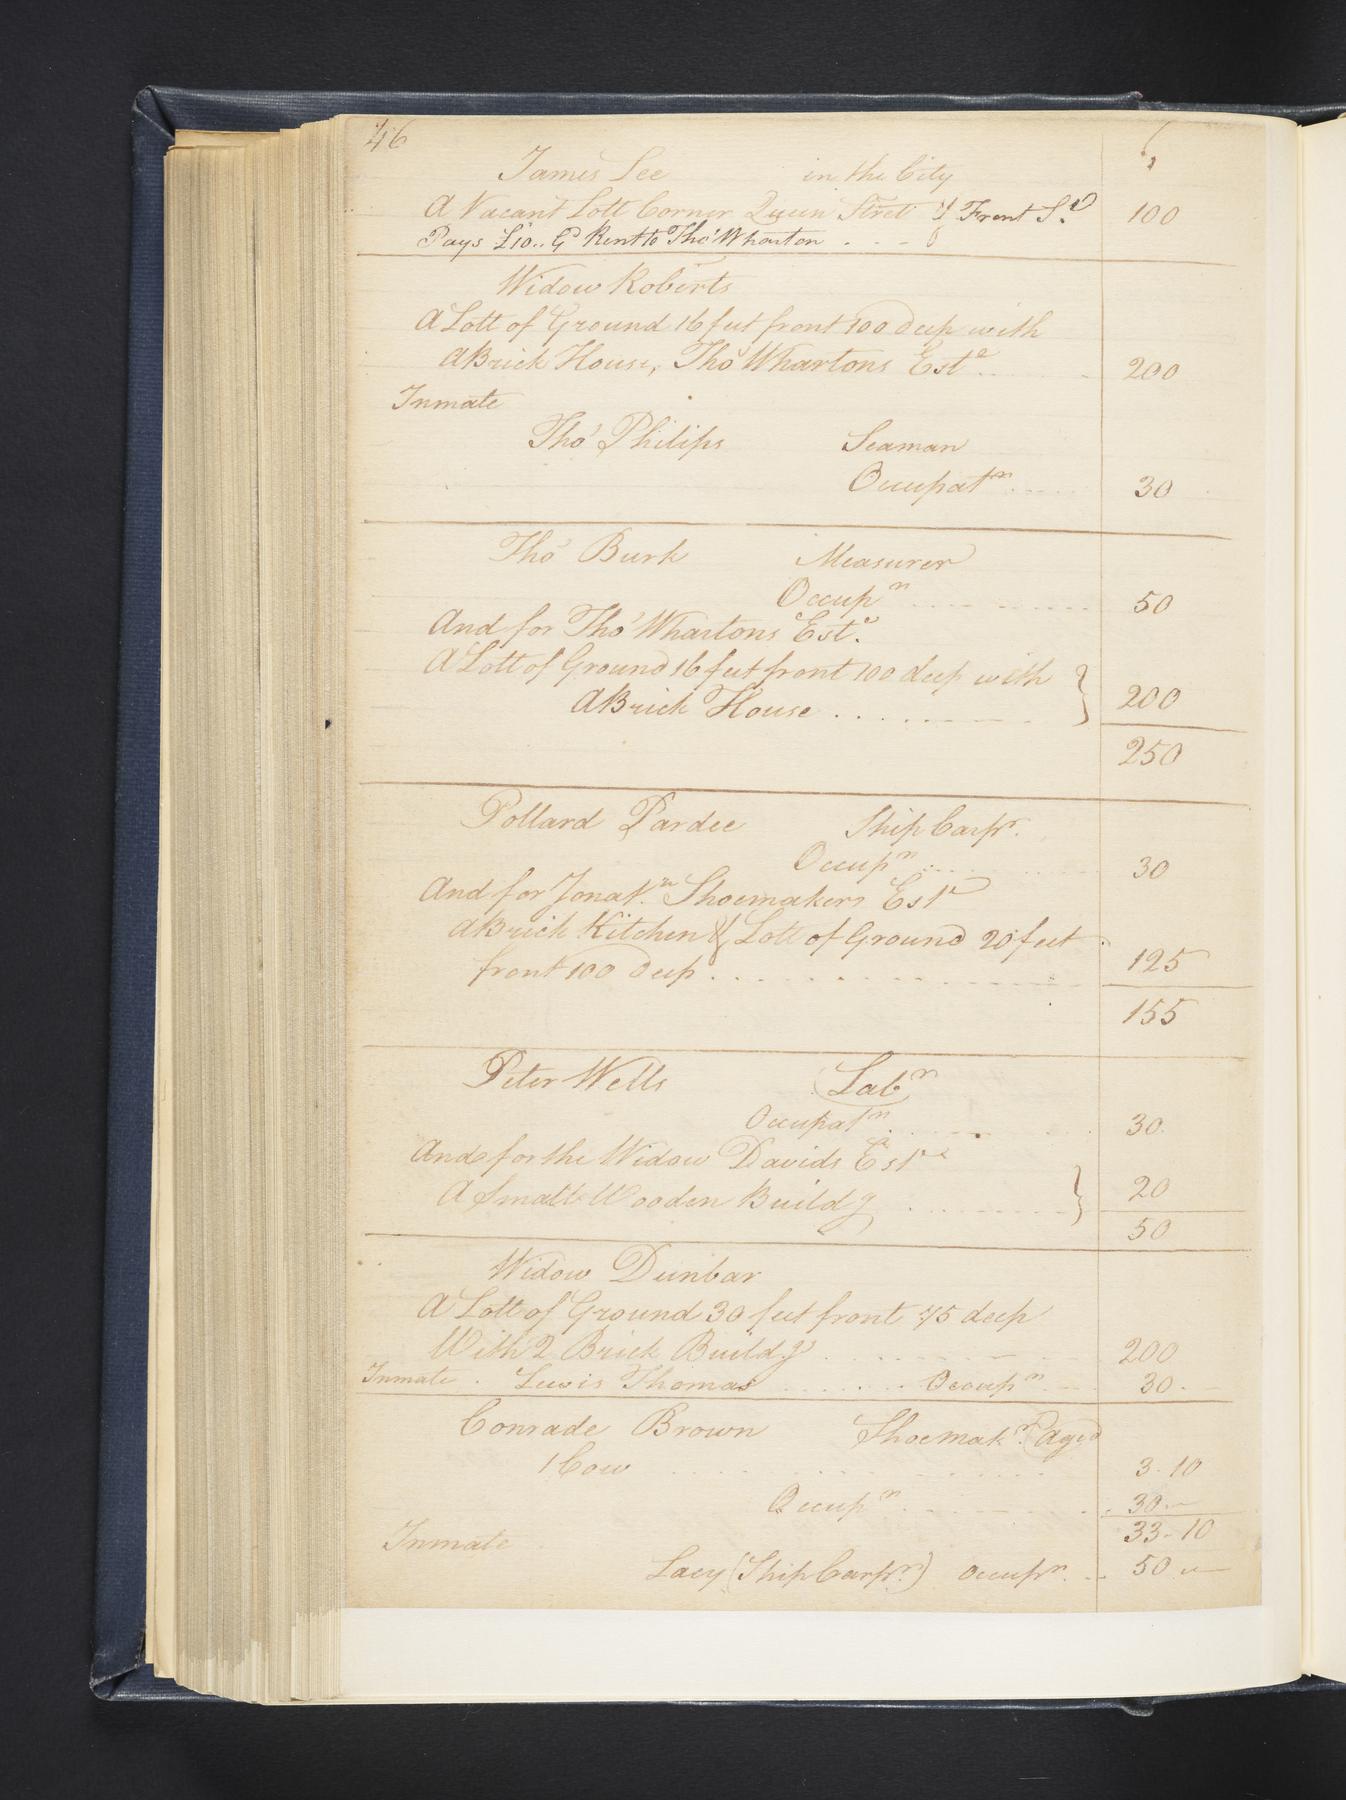 46
James Lee in the City
A Vacant Lott Corner Queen Street & Front St. 100
Pays £10.. G Rent to Tho' Wharton . . .
Widow Roberts
A Lott of Ground 16 feet front 100 deep with
A Brick House, Tho' Whartons Este 200
Inmate
Tho' Philips Seaman
Occupatn 30
Tho' Burk Measurer
Occupn 50
And for Tho' Whartons Este.
A Lott of Ground 16 feet front 100 deep with
A Brick House 200
250
Pollard Pardee Ship Carpr.
Occupn 30
And for Jonatn. Shoemakers Este
A Brick Kitchen & Lott of Ground 20 feet
front 100 deep 125
155
Peter Wells Labr
Occupatn 30
And for the Widow Davids Este
A Small Wooden Buildg 20
50
Widow Dunbar
A Lott of Ground 30 feet front 75 deep
With 2 Brick Buildgs 200
Inmate . Lewis Thomas Occupn 30
Conrade Brown Shoemakr. (aged
1 Cow 3-10
Occupn 30
33-10
Inmate
Lacy (Ship Carpr.) Occupn 50